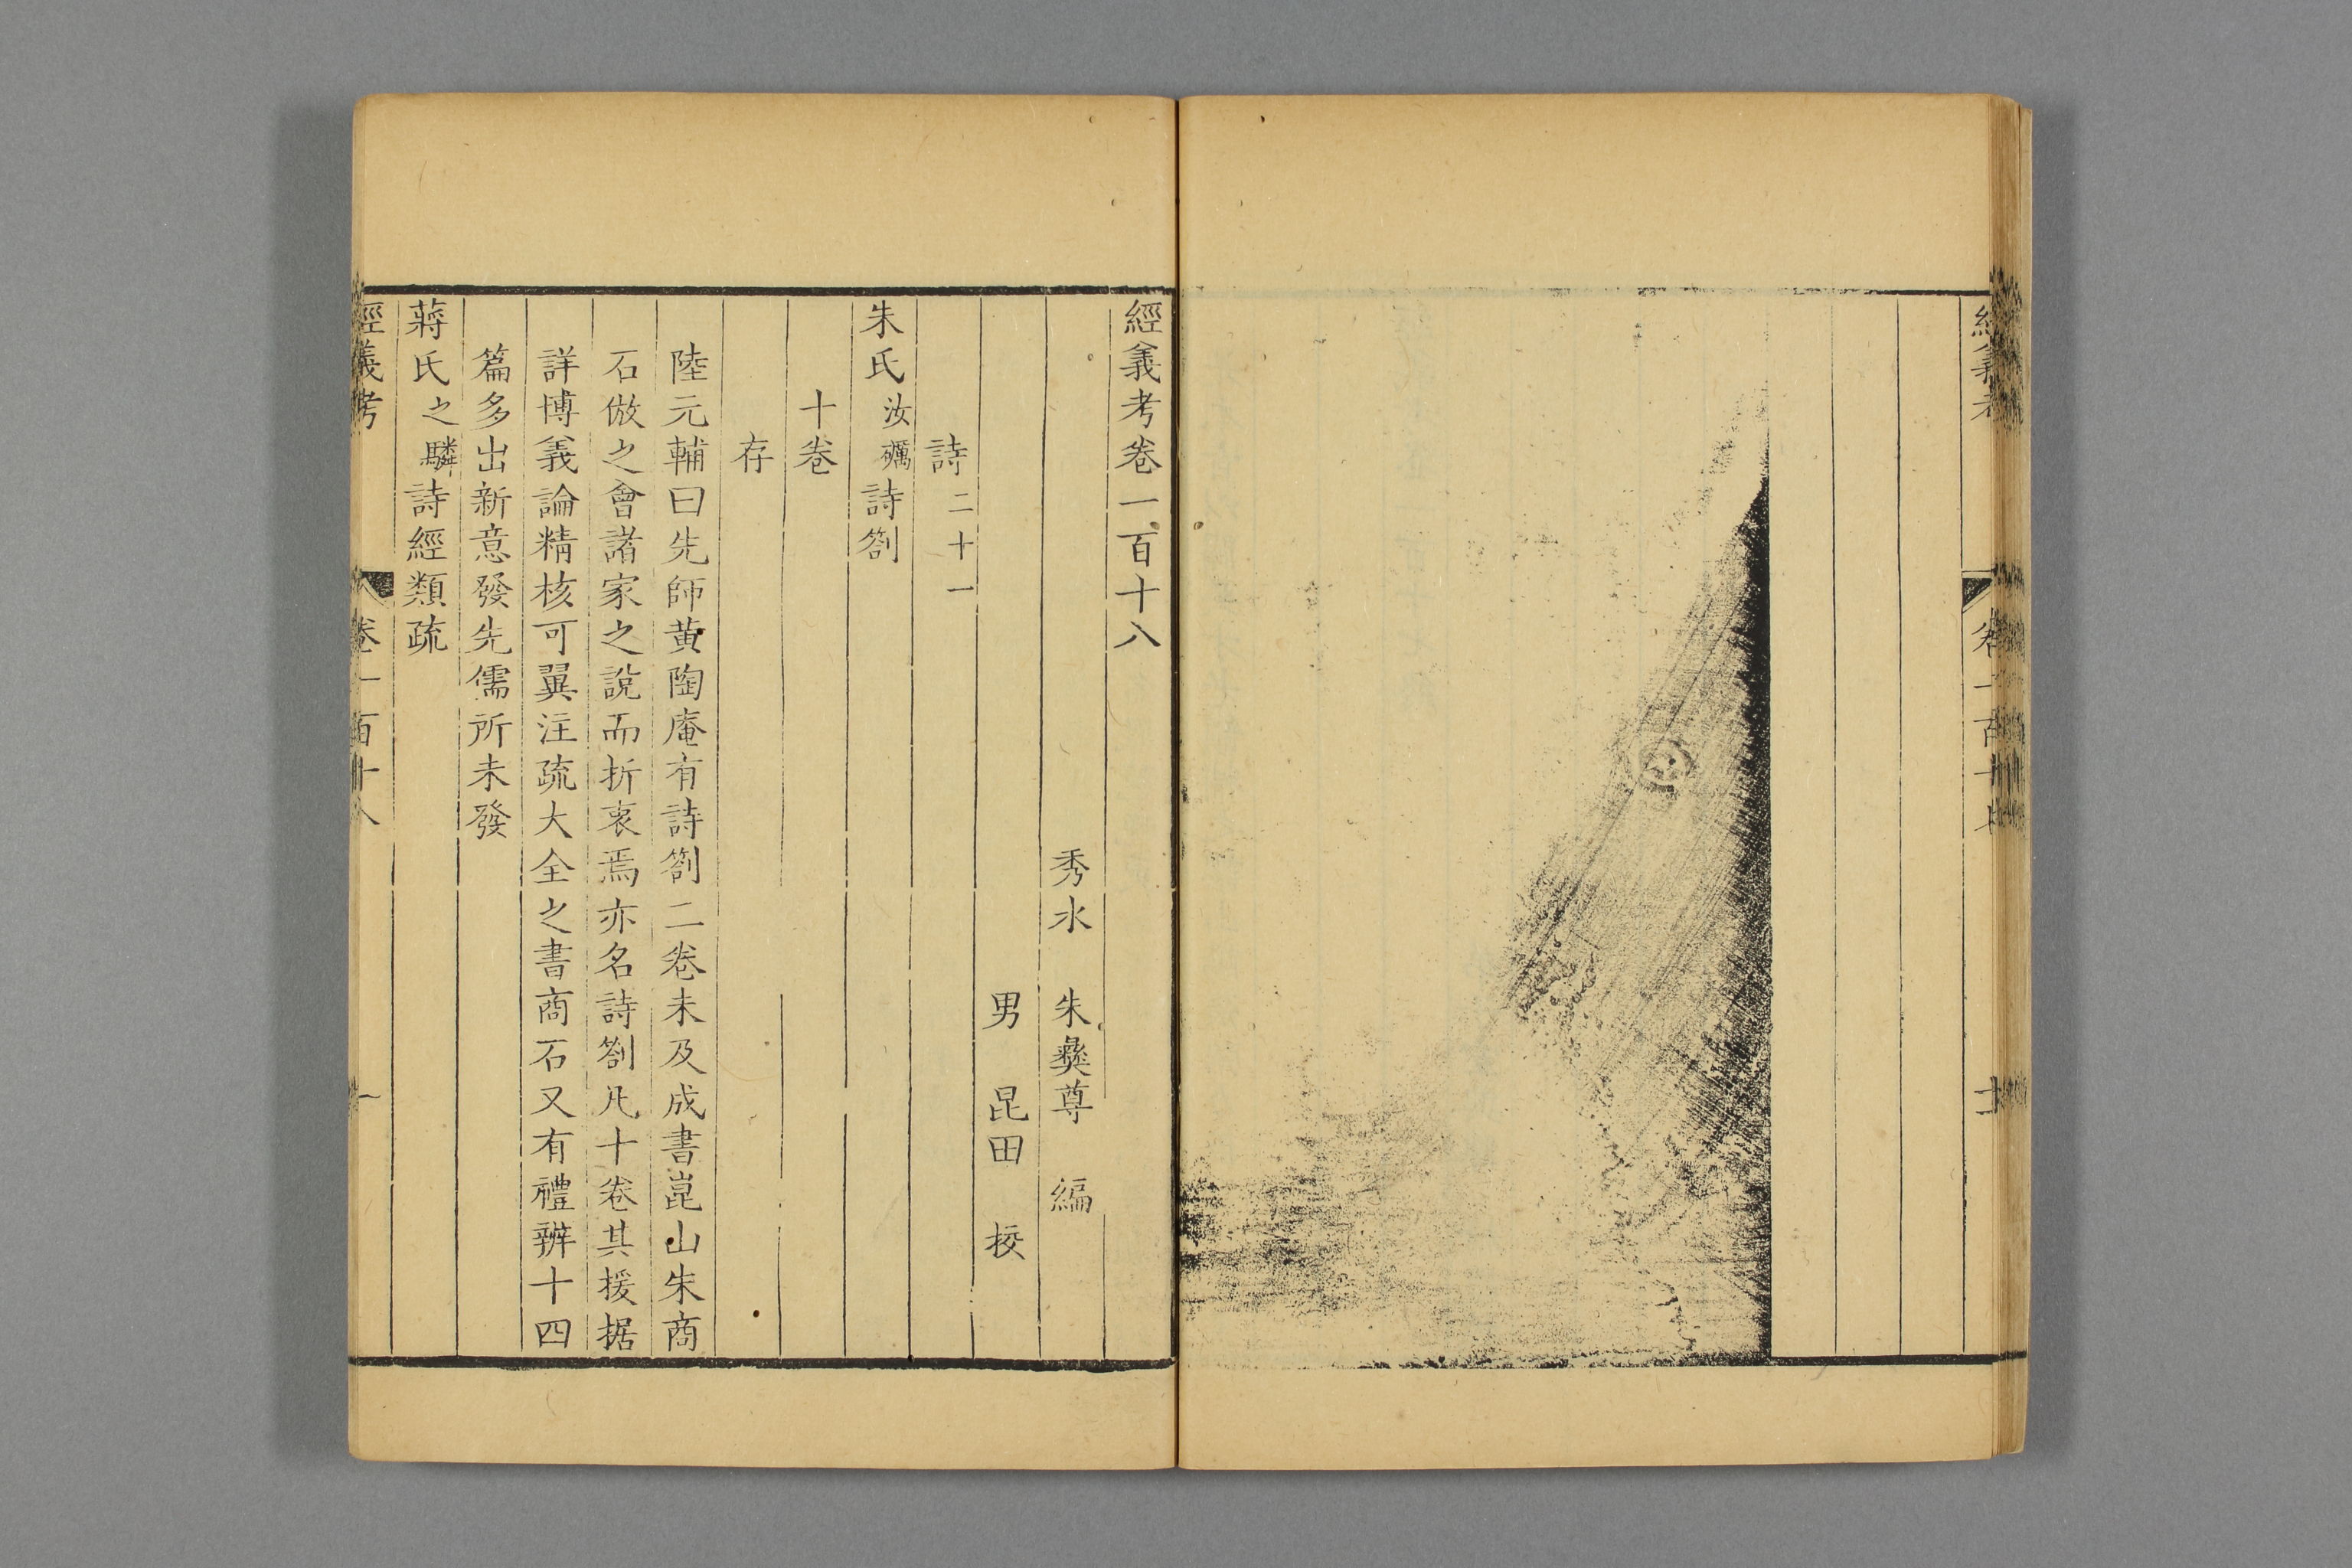 經義考 卷一百十七 十
經義考卷一百十八
秀水 朱彝尊 編
男 昆田 挍
詩二十一
朱氏汝礪詩劄
十卷
存
陸元輔曰先師黃陶庵有詩劄二卷未及成書崑山朱商
石倣之會諸家之說而折衷焉亦名詩劄凡十卷其援据
詳博義論精核可翼注疏大全之書商石又有禮辨十四
篇多出新意發先儒所未發
蔣氏之驎詩經類疏
經義考 卷一百十八 一